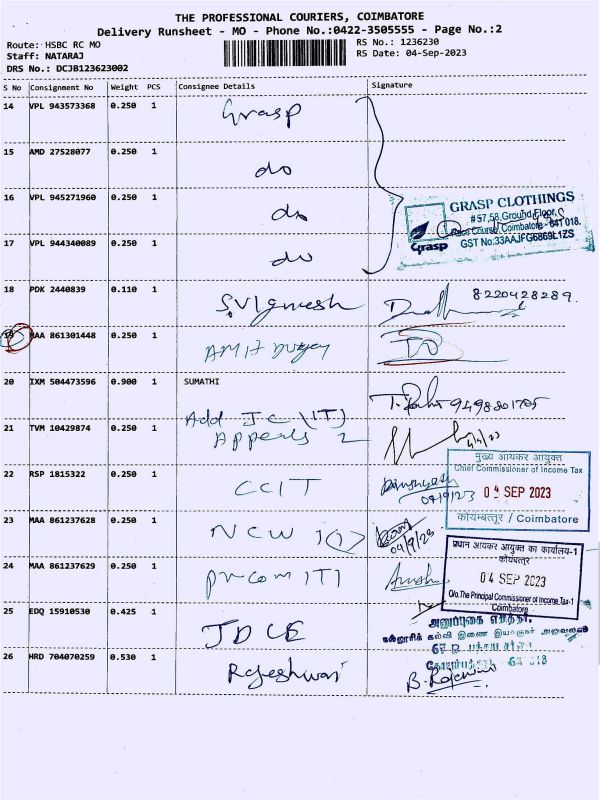 THE PROFESSIONAL COURIERS, COIMBATORE
Delivery Runsheet - MO - Phone No.:0422-3505555 - Page No.:2
Route: HSBC RC MO
RS No.: 1236230
Staff: NATARAJ
RS Date: 04-Sep-2023
DRS No.: DCJB123623002
S No Consignment No Weight PCS Consignee Details Signature
14 VPL 943573368 0.250 1 Grasp
15 AMD 27528077 0.250 1 do
16 VPL 945271960 0.250 1 do
GRASP CLOTHINGS
#57,58,Ground Floor,
Race Course, Coimbatore - 641 018.
GST No:33AAJFG6869L1ZS
Grasp
17 VPL 944340089 0.250 1 do
18 PDK 2440839 0.110 1 S.Vignesh 8220428289.
19 MAA 861301448 0.250 1 AMIT
20 IXM 504473596 0.900 1 SUMATHI 9498801705
21 TVM 10429874 0.250 1 Add JC (IT)
Appeals 2
मुख्य आयकर आयुक्त
Chief Commissioner of Income Tax
04 SEP 2023
कोयम्बत्तूर / Coimbatore
22 RSP 1815322 0.250 1 CCIT 04/9/23
23 MAA 861237628 0.250 1 NCW 04/9/23
प्रधान आयकर आयुक्त का कार्यालय-1
कोयम्बत्तूर
04 SEP 2023
O/o.The Principal Commissioner of Income Tax-1
Coimbatore
24 MAA 861237629 0.250 1 pr com ITI
25 EDQ 15910530 0.425 1 JDCE
26 HRD 704070259 0.530 1 Rajeshwari